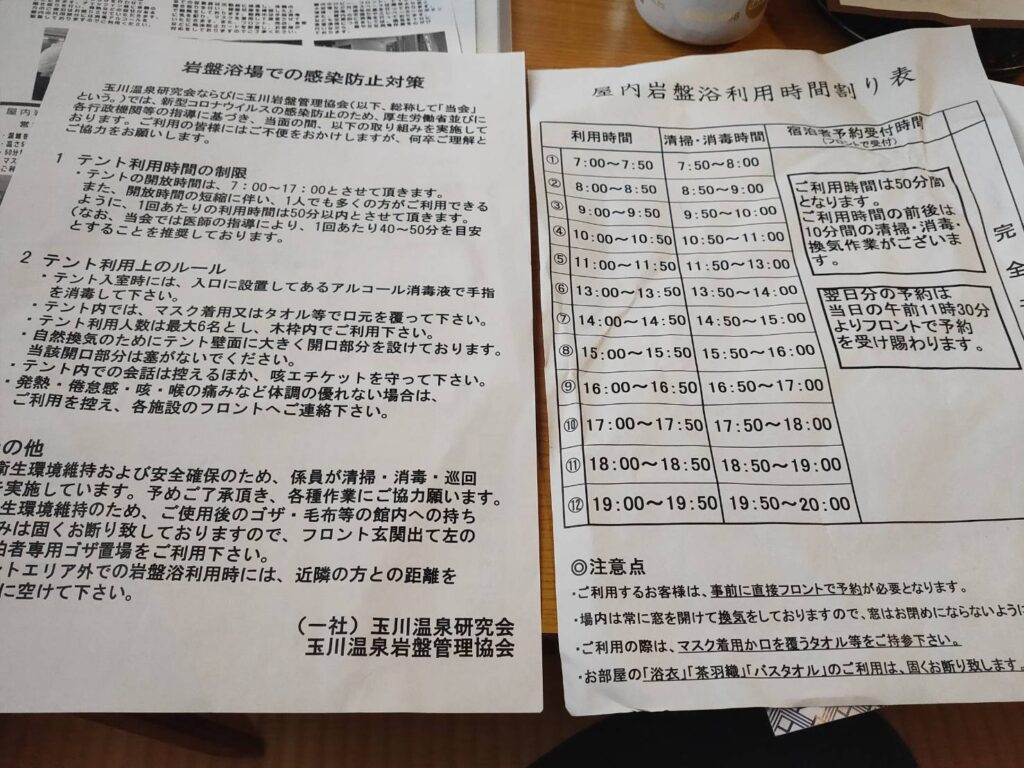 岩盤浴場での感染防止対策
玉川温泉研究会ならびに玉川岩盤管理協会(以下、総称して「当会」
という。)では、新型コロナウイルスの感染防止のため、厚生労働省並びに
各行政機関等の指導に基づき、当面の間、以下の取り組みを実施して
おります。ご利用の皆様にはご不便をおかけしますが、何卒ご理解と
ご協力をお願いします。
1 テント利用時間の制限
・テントの開放時間は、7:00〜17:00とさせて頂きます。
また、開放時間の短縮に伴い、1人でも多くの方がご利用できる
ように、1回あたりの利用時間は50分以内とさせて頂きます。
(なお、当会では医師の指導により、1回あたり40〜50分を目安
とすることを推奨しております。
2 テント利用上のルール
・テント入室時には、入口に設置してあるアルコール消毒液で手指
を消毒して下さい。
・テント内では、マスク着用又はタオル等で口元を覆って下さい。
・テント利用人数は最大6名とし、木枠内でご利用下さい。
・自然換気のためにテント壁面に大きく開口部分を設けております。
当該開口部分は塞がないでください。
・テント内での会話は控えるほか、咳エチケットを守って下さい。
・発熱・倦怠感・咳・喉の痛みなど体調の優れない場合は、
ご利用を控え、各施設のフロントへご連絡下さい。
の他
衛生環境維持および安全確保のため、係員が清掃・消毒・巡回
を実施しています。予めご了承頂き、各種作業にご協力願います。
生環境維持のため、ご使用後のゴザ・毛布等の館内への持ち
みは固くお断り致しておりますので、フロント玄関出て左の
泊者専用ゴザ置場をご利用下さい。
ントエリア外での岩盤浴利用時には、近隣の方との距離を
に空けて下さい。
(一社)玉川温泉研究会
玉川温泉岩盤管理協会
屋内岩盤浴利用時間割り表
利用時間 清掃・消毒時間 宿泊者予約受付時間
(フロントで受付)
① 7:00〜7:50 7:50〜8:00
② 8:00〜8:50 8:50〜9:00
③ 9:00〜9:50 9:50〜10:00
④ 10:00〜10:50 10:50〜11:00
⑤ 11:00〜11:50 11:50〜13:00
⑥ 13:00〜13:50 13:50〜14:00
⑦ 14:00〜14:50 14:50〜15:00
⑧ 15:00〜15:50 15:50〜16:00
⑨ 16:00〜16:50 16:50〜17:00
⑩ 17:00〜17:50 17:50〜18:00
⑪ 18:00〜18:50 18:50〜19:00
⑫ 19:00〜19:50 19:50〜20:00
ご利用時間は50分間
となります。
ご利用時間の前後は
10分間の清掃・消毒・
換気作業がございま
す。
翌日分の予約は
当日の午前11時30分
よりフロントで予約
を受け賜わります。
完
全
◎注意点
・ご利用するお客様は、事前に直接フロントで予約が必要となります。
・場内は常に窓を開けて換気をしておりますので、窓はお閉めにならないように
・ご利用の際は、マスク着用か口を覆うタオル等をご持参下さい。
・お部屋の「浴衣」「茶羽織」「バスタオル」のご利用は、固くお断り致します。